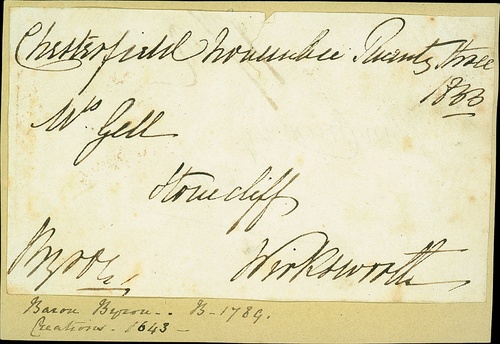 Chesterfield November Twenty three
1833
Mrs Gell
Stonecliff
Byron
Wirksworth
Baron Byron - . B - 1789.
Creations - 1643 -